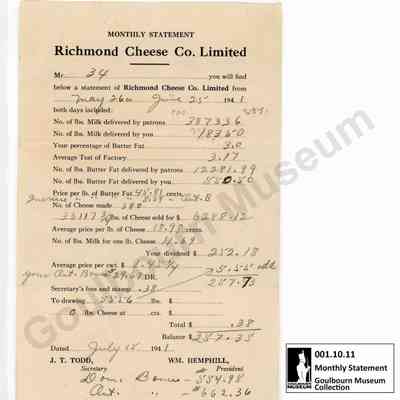 MONTHLY STATEMENT
Richmond Cheese Co. Limited
Mr. 34 you will find
below a statement of Richmond Cheese Co. Limited from
May 26 to June 25 1941
both days included:
No. of lbs. Milk delivered by patrons 387336
No. of lbs. Milk delivered by you 18350
Your percentage of Butter Fat 3.0
Average Test of Factory 3.17
No. of lbs. Butter Fat delivered by patrons 12281.99
No. of lbs. Butter Fat delivered by you 550.50
Price per lb. of Butter Fat 45.81 cents.
No. of Cheese made 380
33117 3/4 lbs. of Cheese sold for $ 6288.12
Average price per lb. of Cheese 18.98 cents.
No. of lbs. Milk for one lb. Cheese 11.69
Your dividend $ 252.18
Average price per cwt. $
your Ont. Bonus $ 29.69 DR. 5.55 add
Secretary's fees and stamp .38 257.73
To drawing 5556 lbs. $
0 lbs. Cheese at cts. $
Total $ .38
Balance $ 257.35
Dated July 15 1941
J. T. TODD, WM. HEMPHILL,
Secretary President
Dom. Bonus - 554.98
Ont. " - $662.36
Goulbourn Museum
001.10.11
Monthly Statement
Goulbourn Museum
Collection
GOULBOURN
MUSEUM